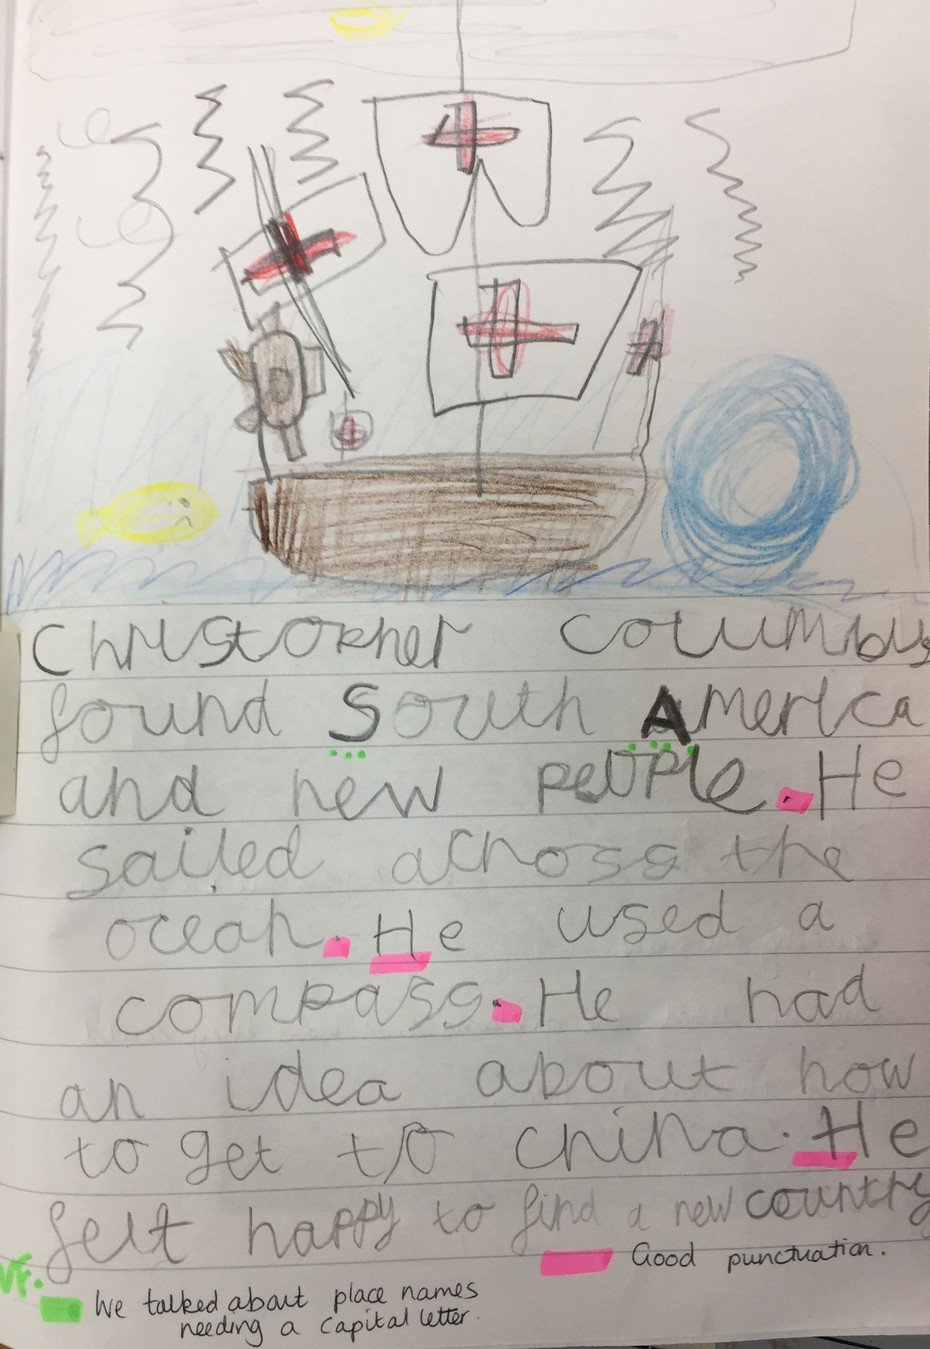 Christopher Columbus
found South America
and new people. He
sailed across the
ocean. He used a
compass. He had
an idea about how
to get to china. He
felt happy to find a new country
Good punctuation.
VF.
We talked about place names
needing a capital letter.